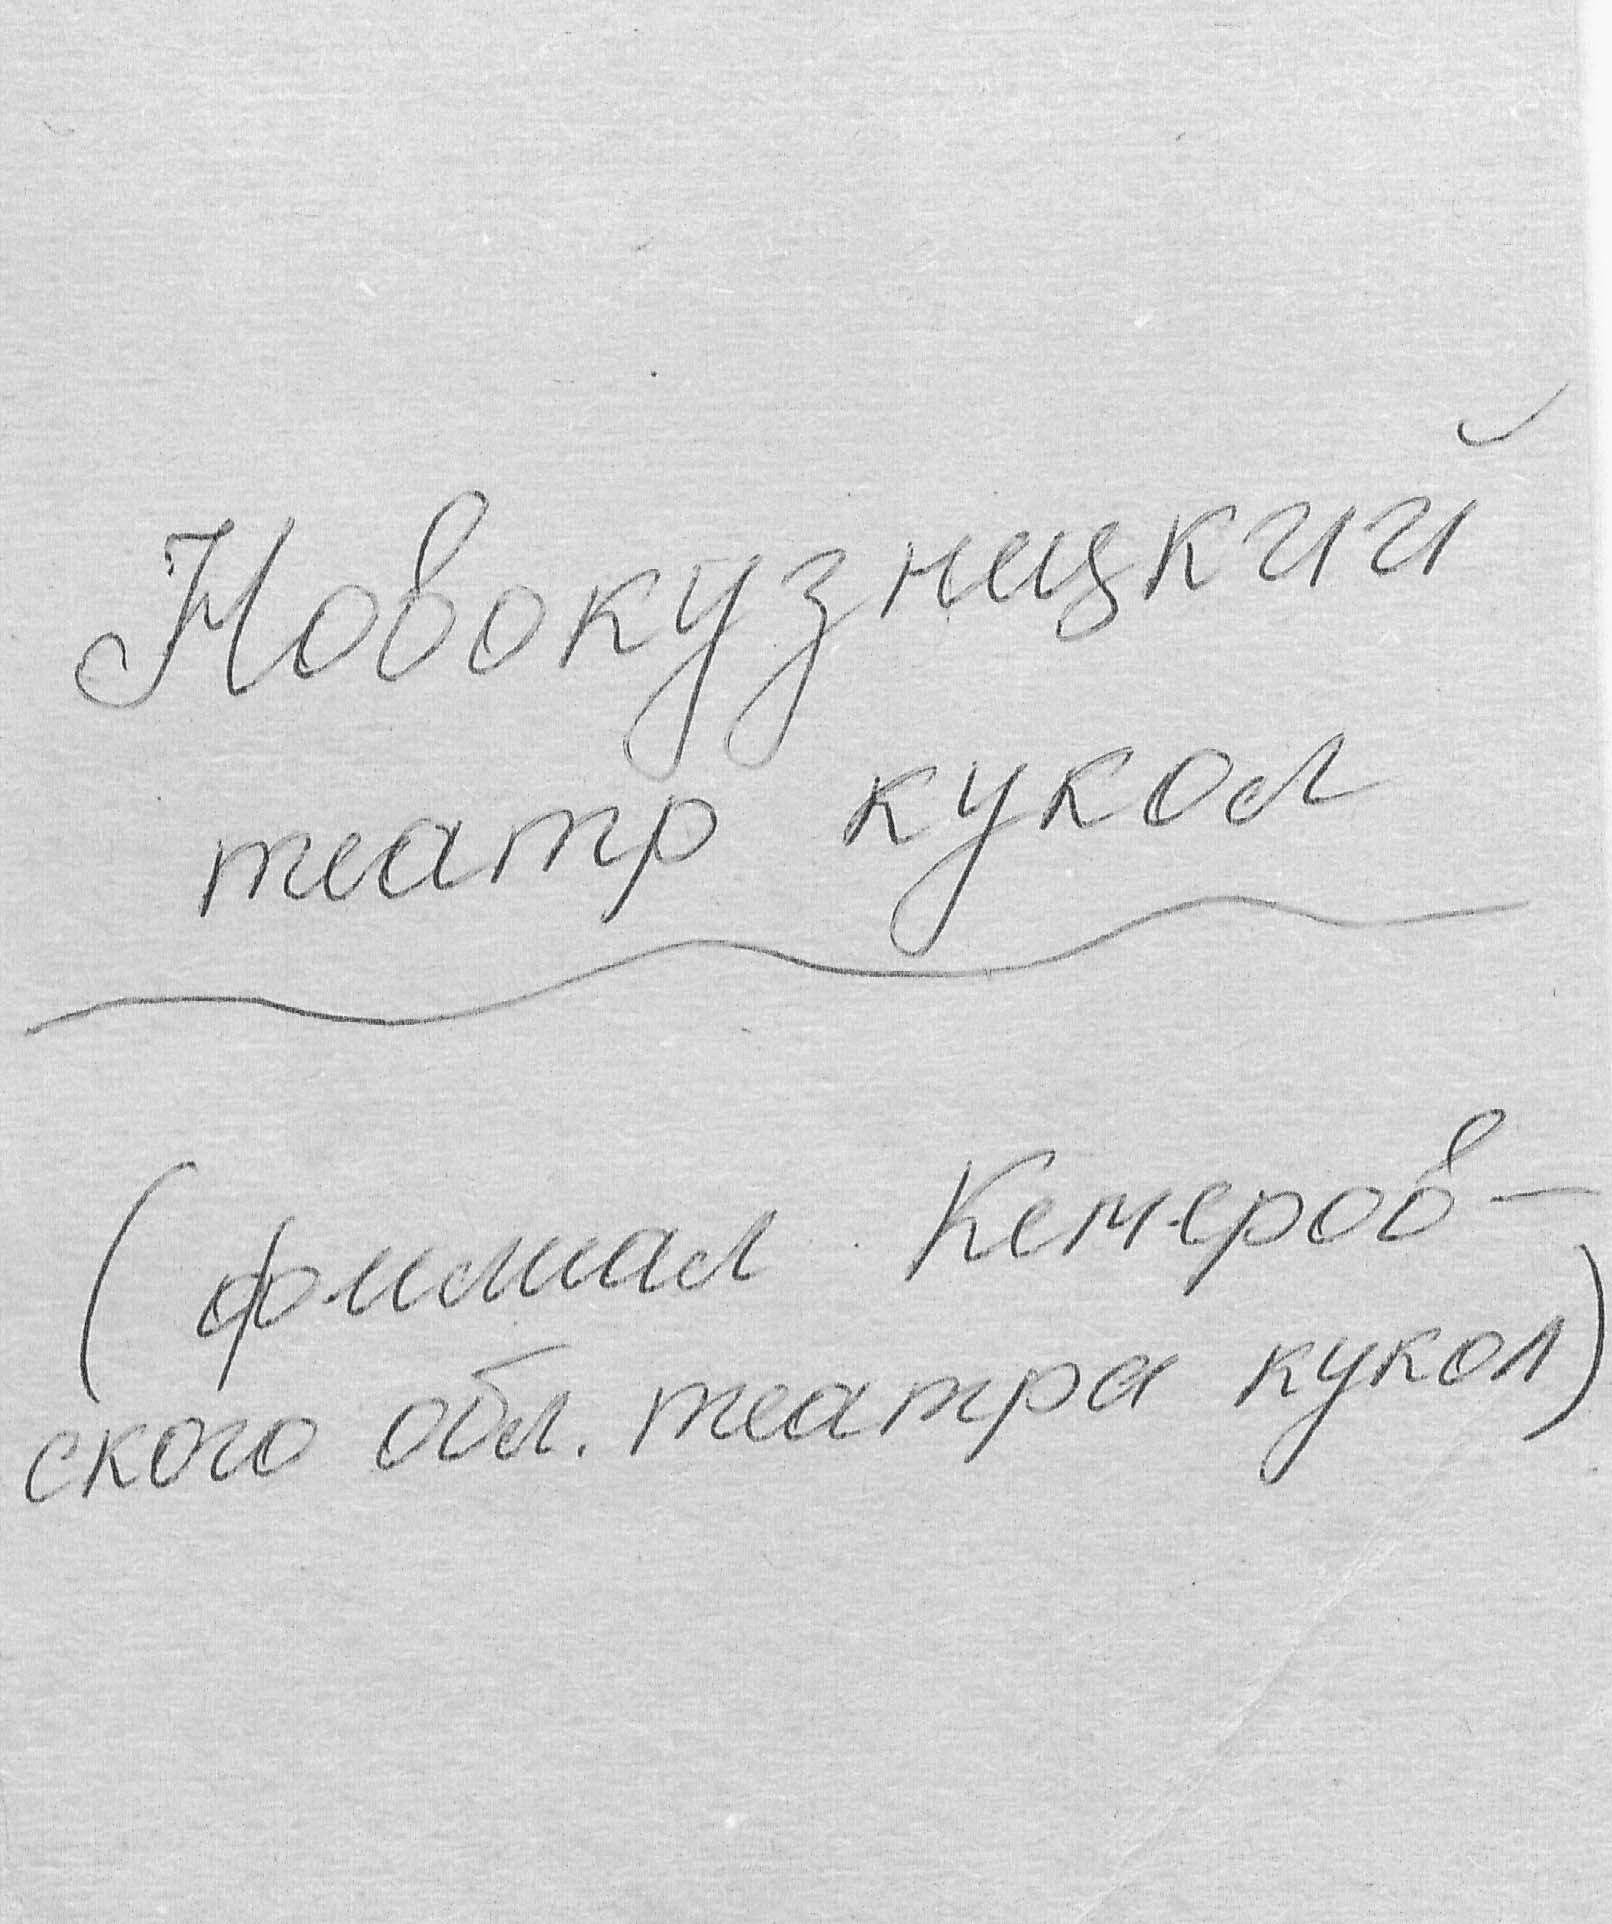 Новокузнецкий
театр кукол
(филиал Кемеров-
ского обл. театра кукол)